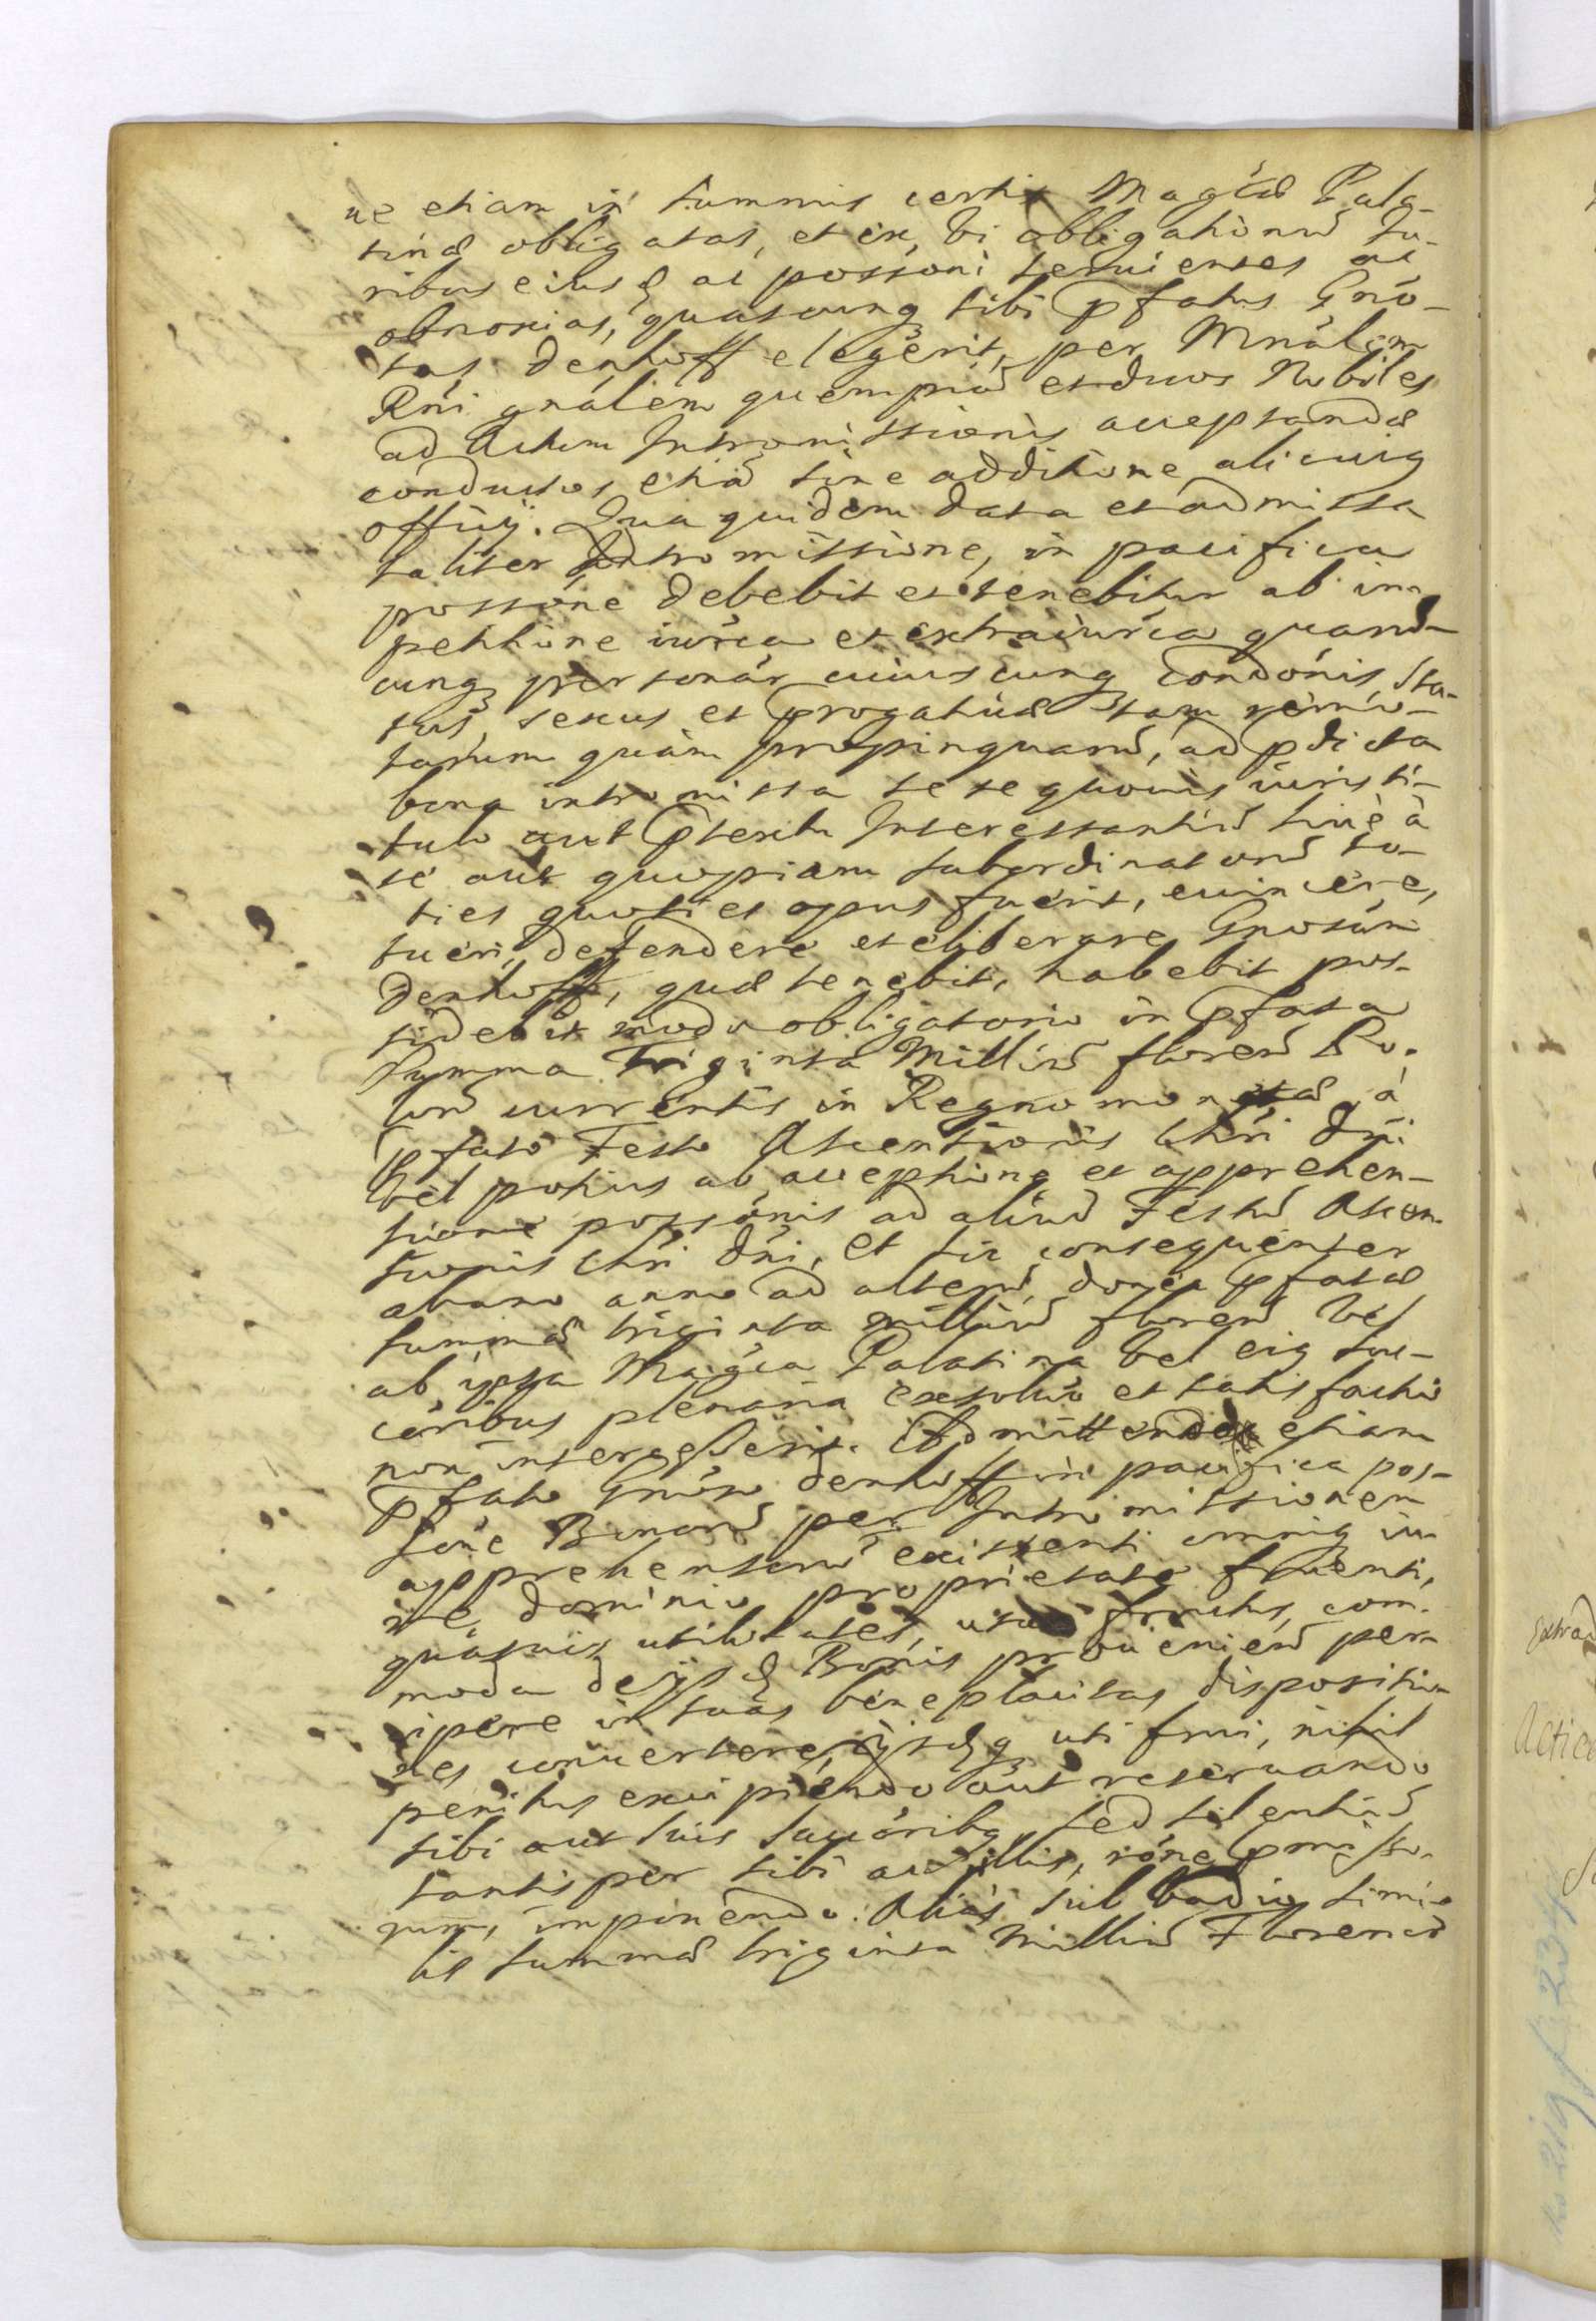 ue etiam in summis certis Magcae Pala-
tinae obligatas, et ex vi obligationu Iu-
ribus eiusd ac possoni seruientes ac
obnoxias, quascunq sibi pfatus Gnō-
sus denhoff elegerit, per Mnālem
Rni gnālem quempia et duos Nobiles
ad Actum Intromissionis acceptandae
conductos etia sine additione alicuig
offcij. Qua quidem data et admissa
taliter Intromissione, in pacifica
possone debebit et tenebitur ab im-
petitione iurca et extraiurca quarū-
cunq personar cuiuscunq condonis, sta-
tus, sexus et progatiuae tam remo-
tarum quàm propinquaru, ad pdicta
bona intromissa sese quouis iuris ti-
tulo aut ptextu Interessantiu siuè à
sè aut quopiam subordinatoru to-
ties quoties opus fuerit, euincere,
tueri, defendere et eliberare Gnosum
denhoff, quae tenebit, habebit pos-
sidebit modo obligatorio in pfata
Summa Triginta Milliu floren Po-
lon currentis in Regno monetae, à
pfato Festo Ascentionis Chri Dni
vel potius ab acceptione et apprehen-
sione possonis ad aliud Festu Ascen-
sionis Chri Dni, et sic consequenter
ab anno anno ad alteru, donec pfatae
summae triginta milliu floren vel
ab ipsa Magca Palatina vel eig suc-
coribus plenaria exsoluo et satisfactio
non intercesserit. Admittendo etiam
pfato Gnoso denhoff in pacifica pos-
sone Bonoru per Intromissionem
apprehensoru existenti omnig iu
re, dominio proprietate fruenti,
quasuis utilitates, usus fructus, com-
moda de ijsd Bonis prouenien per-
cipere in suas beneplacitas dispositio-
nes conuertere, ijsdq uti frui, nihil
penitus excipiendo aut reseruando
sibi aut suis succoribq, sed silentiu
tantisper sibi ac illis, rone pmisso-
rum, imponendo. Alias sub vadio simi-
lis summae triginta Milliu Florenoru